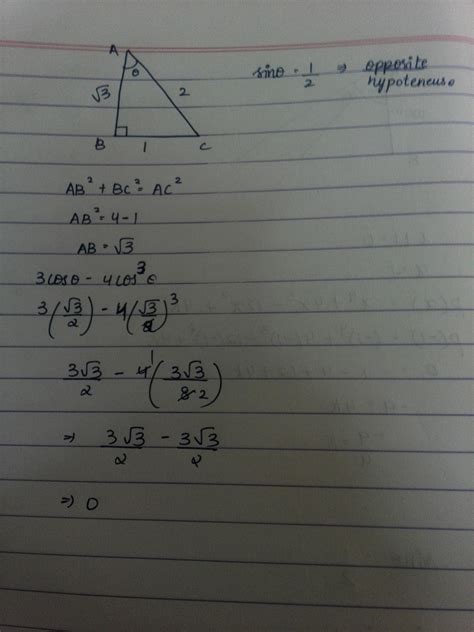 A
θ
sinθ = 1/2 ⇒ opposite/hypotenuse
√3 2
B 1 C
AB² + BC² = AC²
AB² = 4-1
AB = √3
3cosθ - 4cos³θ
3(√3/2) - 4(√3/2)³
3√3/2 - 4¹(3√3/8 2)
⇒ 3√3/2 - 3√3/2
⇒ 0